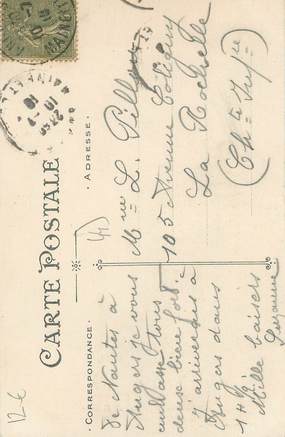 CARTE POSTALE
CORRESPONDANCE
ADRESSE
de Nantes à
Angers je vous
embrasse tous
deux bien fort.
j'arriverais à
Angers dans
1 H ½
Mille baisers
Suzanne
Mme L. Pillon
105 Avenue Coligny
La Rochelle
(Chte Infre)
12€